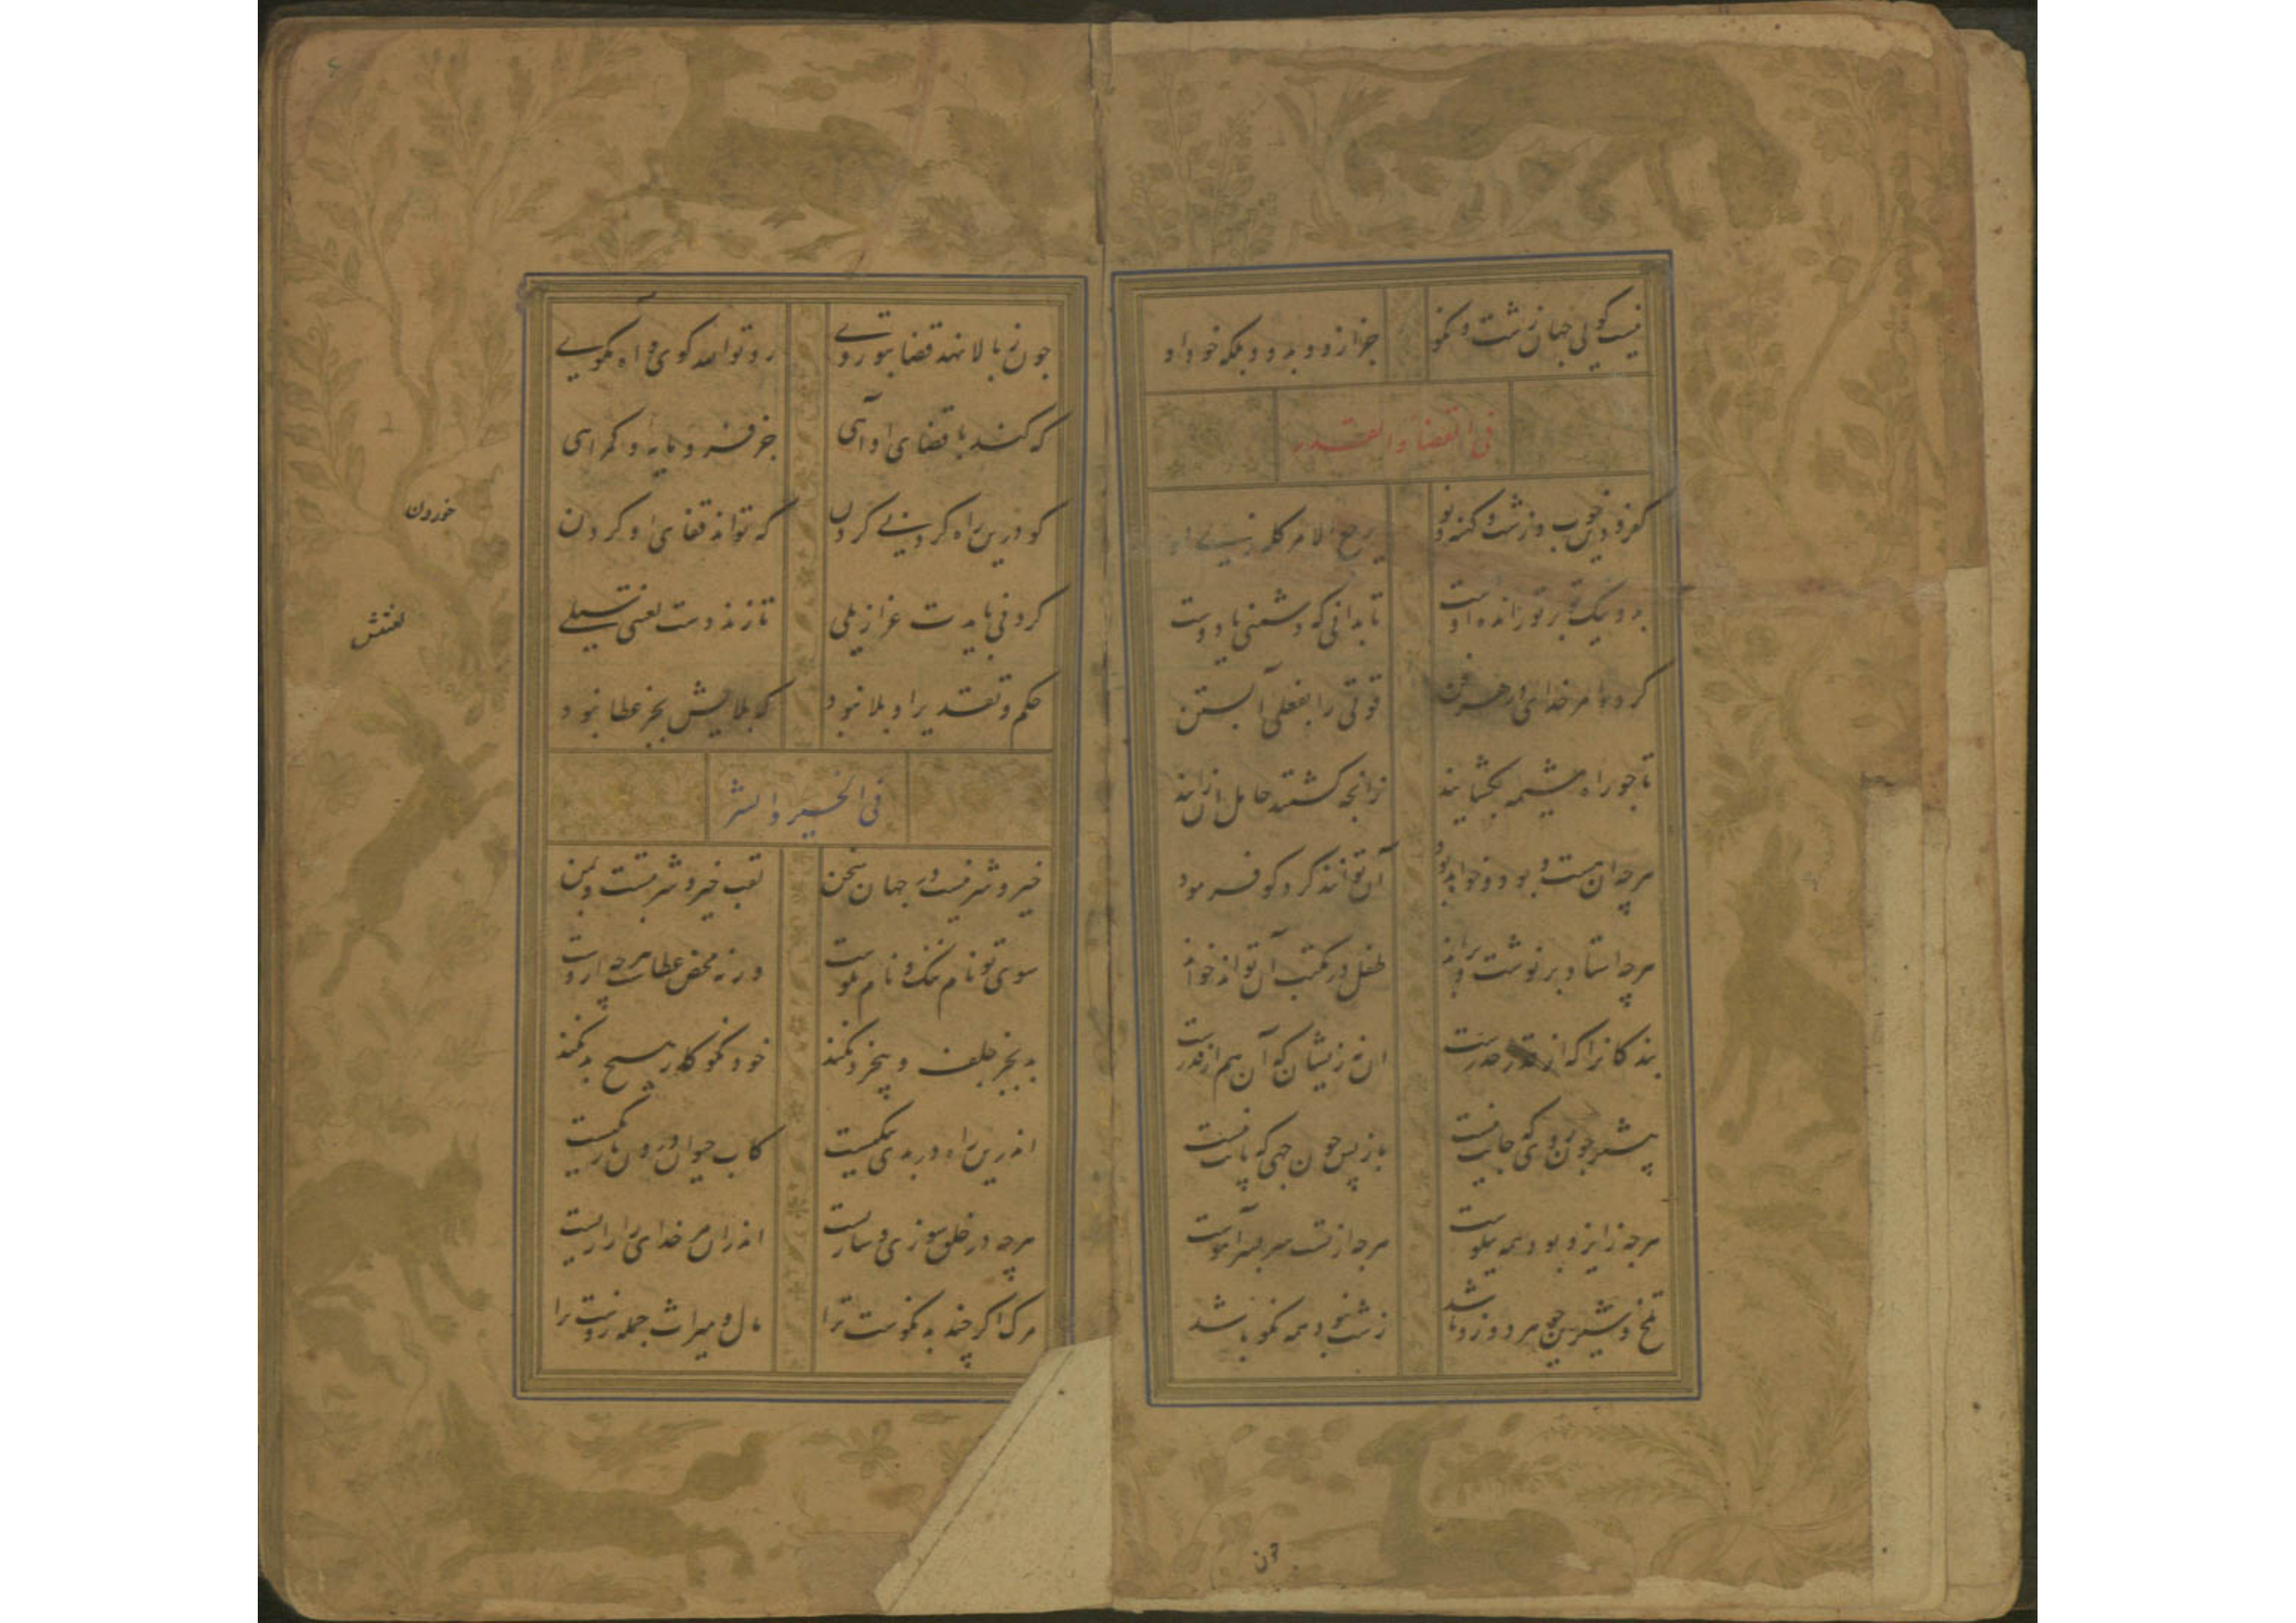 نیست گویی جهان زشت و نکو جز ازو و بدو و بلکه خود او
فی القضاء والقدر
کفر و دین خوب و زشت و کهنه و نو یرجع الامر کله زی او
بد و نیک تو بر تو رانده اوست تا بدانی که دشمنی یا دوست
کرد امر خدای در هر فن قوتی را بفعلی آبستن
تا چو راه مشیمه بکشایند زانچه کشتند حامل آن زایند
هرچه آن هست و بود و خواهد بود آن توانند کرد کو فرمود
هرچه استاد برنوشت و براند طفل در مکتب آن تواند خواند
بندکانرا که از قدر حذرست آن نه زیشان که آن هم از قدرست
پیشتر چون روی که جایت نیست بازپس چون جهی که پایت نیست
هرچه ز ایزد بود همه نیکوست هرچه از تست سربسر آهوست
تلخ و شیرین چو هر دو زو باشد زشت نبود همه نکو باشد
چون ز بالا نهد قضا بتو روی رو تو الله کوی و آه مکوی
که کند با قضای او آهی جز فرومایه و کمراهی
کو درین راه کرد نی کردن که تواند قفای او کردن
کردنی بایدت عزازیلی تا زند دست لعنتی سیلی
خوردن
لعنتش
حکم و تقدیر او بلا نبود که بلایش بجز عطا نبود
فی الخیر والشر
خیر و شر نیست در جهان سخن لقب خیر و شر بتست و بمن
سوی تو نام ننک و نام نکوست ورنه محض عطاست هرچه ازوست
بد بجز جلف و بیخرد نکند خود نکوکار هیچ بد نکند
اندرین راه در بدی نیکیست کاب حیوان درون تاریکیست
هرچه در خلق سوزی و سازیست اندران مر خدای را رازیست
مرک اکر چند بد نکوست ترا مال و میراث جمله زوست ترا